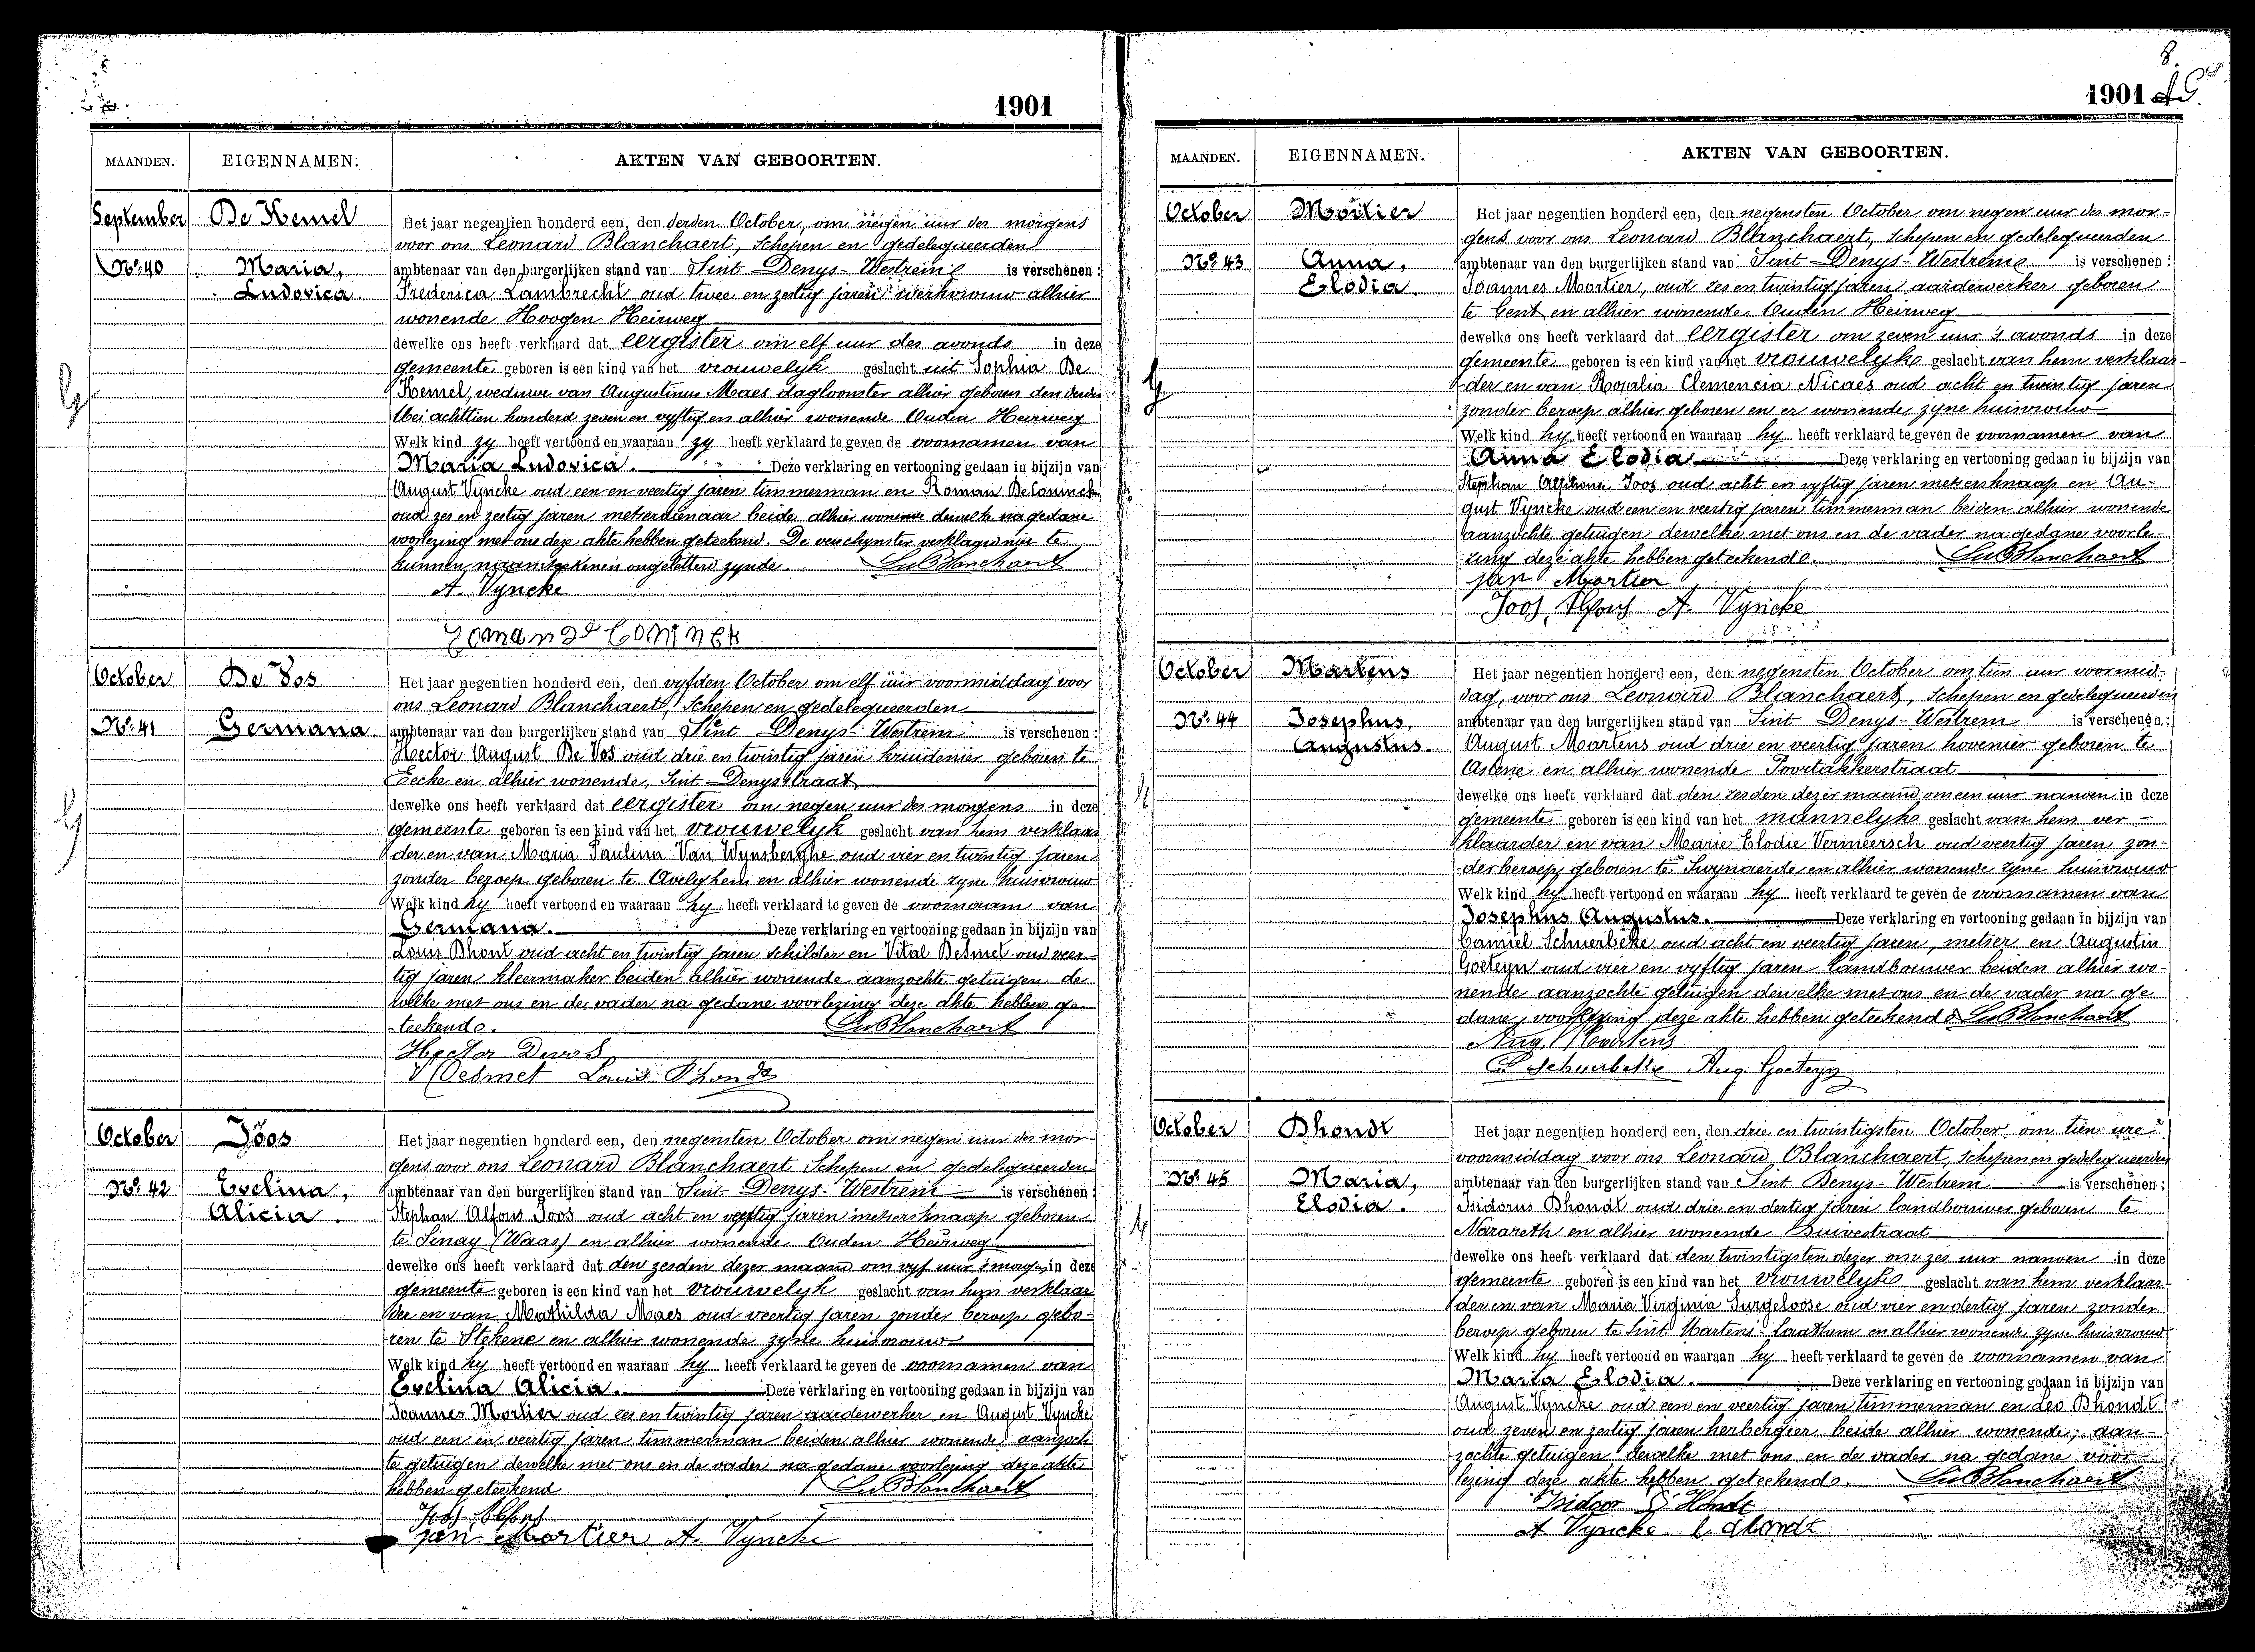 1901
MAANDEN. EIGENNAMEN. AKTEN VAN GEBOORTEN.
September De Kemel Het jaar negentien honderd een, den derden October, om negen uur des morgens
voor ons Leonard Blanchaert, Schepen en gedelegueerden
No. 40 Maria, ambtenaar van den burgerlijken stand van Sint Denys-Westrem is verschenen :
Ludovica. Frederica Lambrecht oud twee en zestig jaren werkvrouw alhier
wonende Hoogen Heirweg
dewelke ons heeft verklaard dat eergister om elf uur des avonds in deze
gemeente geboren is een kind van het vrouwelyk geslacht uit Sophia De
Kemel, weduwe van Augustinus Maes dagloonster alhier geboren den derden
Mei achttien honderd zeven en vyftig en alhier wonende Ouden Heirweg
Welk kind zy heeft vertoond en waaraan zy heeft verklaard te geven de voornamen van
Maria Ludovica. Deze verklaring en vertooning gedaan in bijzijn van
August Vyncke oud een en veertig jaren timmerman en Roman Deconinck
oud zes en zestig jaren metserdienaar beide alhier wonende dewelke na gedane
voorlezing met ons deze akte hebben geteekend. De verschynster verklaard niet te
kunnen naamteekenen ongeletterd zynde. Le Blanchaert
A. Vyncke
October De Vos Het jaar negentien honderd een, den vyfden October om elf uur voormiddag voor
ons Leonard Blanchaert, Schepen en gedelegueerden
No. 41 Germana. ambtenaar van den burgerlijken stand van Sint Denys-Westrem is verschenen :
Hector August De Vos oud drie en twintig jaren kruidenier geboren te
Eecke en alhier wonende, Sint-Denysstraat
dewelke ons heeft verklaard dat eergister om negen uur des morgens in deze
gemeente geboren is een kind van het vrouwelyk geslacht van hem verklaar
der en van Maria Paulina Van Wynsberghe oud vier en twintig jaren
zonder beroep geboren te Avelghem en alhier wonende zyne huisvrouw
Welk kind hy heeft vertoond en waaraan hy heeft verklaard te geven de voornaam van
Germana. Deze verklaring en vertooning gedaan in bijzijn van
Louis Dhont oud acht en twintig jaren schilder en Vital Desmet oud veer-
tig jaren kleermaker beiden alhier wonende aanzochte getuigen de
welke met ons en de vader na gedane voorlezing deze akte hebben ge-
teekend. Le Blanchaert
Hector Devos
V Desmet Louis Dhondt
October Joos Het jaar negentien honderd een, den negensten October om negen uur des mor-
gens voor ons Leonard Blanchaert Schepen en gedelegueerden
No. 42 Evelina, ambtenaar van den burgerlijken stand van Sint Denys-Westrem is verschenen :
Alicia. Stephan Alfons Joos oud acht en vyftig jaren metsersknaap geboren
te Sinay (Waas) en alhier wonende Ouden Heirweg
dewelke ons heeft verklaard dat den zesden dezer maand om vyf uur s'morgens in deze
gemeente geboren is een kind van het vrouwelyk geslacht van hem verklaar
der en van Mathilda Maes oud veertig jaren zonder beroep gebo-
ren te Stekene en alhier wonende zyne huisvrouw
Welk kind hy heeft vertoond en waaraan hy heeft verklaard te geven de voornamen van
Evelina Alicia. Deze verklaring en vertooning gedaan in bijzijn van
Joannes Mortier oud zes en twintig jaren aardewerker en August Vyncke
oud een en veertig jaren timmerman beiden alhier wonende aanzoch
te getuigen dewelke met ons en de vader na gedane voorlezing deze akte
hebben geteekend Le Blanchaert
Joos Alfons
jan Mortier A. Vyncke
8.
1901
MAANDEN. EIGENNAMEN. AKTEN VAN GEBOORTEN.
October Mortier Het jaar negentien honderd een, den negensten October om negen uur des mor-
gens voor ons Leonard Blanchaert, Schepen en gedelegueerden
No. 43 Anna, ambtenaar van den burgerlijken stand van Sint Denys-Westrem is verschenen :
Elodia. Joannes Mortier, oud zes en twintig jaren aardewerker geboren
te Gent en alhier wonende Ouden Heirweg
dewelke ons heeft verklaard dat eergister om zeven uur 's avonds in deze
gemeente geboren is een kind van het vrouwelyk geslacht van hem verklaar-
der en van Rosalia Clemencia Nicaes oud acht en twintig jaren
zonder beroep alhier geboren en er wonende zyne huisvrouw
Welk kind hy heeft vertoond en waaraan hy heeft verklaard te geven de voornamen van
Anna Elodia Deze verklaring en vertooning gedaan in bijzijn van
Stephan Alphons Joos oud acht en vyftig jaren metsersknaap en Au-
gust Vyncke oud een en veertig jaren timmerman beiden alhier wonende
aanzochte getuigen dewelke met ons en de vader na gedane voorle-
zing deze akte hebben geteekend. Le Blanchaert
jan Mortier
Joos Alfons A. Vyncke
October Martens Het jaar negentien honderd een, den negensten October om tien uur voormid-
dag, voor ons Leonard Blanchaert, Schepen en gedelegueerden
No. 44 Josephus, ambtenaar van den burgerlijken stand van Sint Denys-Westrem is verschenen :
Augustus. August Martens oud drie en veertig jaren hovenier geboren te
Astene en alhier wonende Poortakkerstraat
dewelke ons heeft verklaard dat den zesden dezer maand om een uur namen in deze
gemeente geboren is een kind van het mannelyk geslacht van hem ver-
klaarder en van Marie Elodie Vermeersch oud veertig jaren, zon-
der beroep geboren te Swynaerde en alhier wonende zyne huisvrouw
Welk kind hy heeft vertoond en waaraan hy heeft verklaard te geven de voornamen van
Josephus Augustus. Deze verklaring en vertooning gedaan in bijzijn van
Camiel Schuerbeke oud acht en veertig jaren, metser en Augustin
Goeteyn oud vier en vyftig jaren landbouwer beiden alhier wo-
nende aanzochte getuigen dewelke met ons en de vader na ge-
dane voorlezing deze akte hebben geteekend Le Blanchaert
Aug. Martens
C Schuerbeke Aug. Goeteyn
October Dhondt Het jaar negentien honderd een, den drie en twintigsten October, om tien ure
voormiddag voor ons Leonard Blanchaert, schepen en gedelegueerden
No. 45 Maria, ambtenaar van den burgerlijken stand van Sint Denys-Westrem is verschenen :
Elodia. Isidorus Dhondt oud drie en dertig jaren landbouwer geboren te
Nazareth en alhier wonende Duivestraat
dewelke ons heeft verklaard dat den twintigsten dezer om zes uur namen in deze
gemeente geboren is een kind van het vrouwelyk geslacht van hem verklaar-
der en van Maria Virginia Surgeloose oud vier en dertig jaren zonder
beroep geboren te Sint Martens Laathem en alhier wonende zyne huisvrouw
Welk kind hy heeft vertoond en waaraan hy heeft verklaard te geven de voornamen van
Maria Elodia. Deze verklaring en vertooning gedaan in bijzijn van
August Vyncke oud een en veertig jaren timmerman en Leo Dhondt
oud zeven en zestig jaren herbergier beide alhier wonende, aan-
zochte getuigen dewelke met ons en de vader na gedane voor-
lezing deze akte hebben geteekend. Le Blanchaert
Isidoor D Hondt
A Vyncke L dhondt